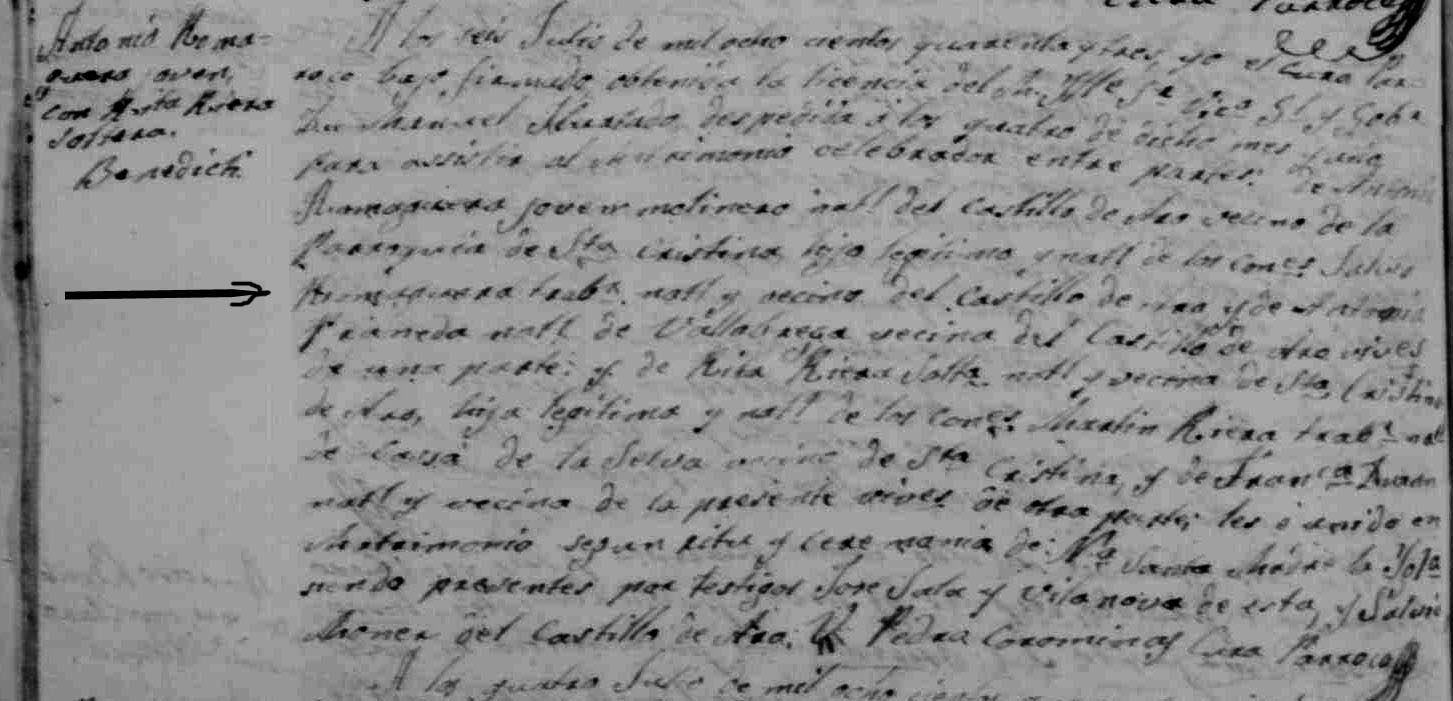 Cura Parroco
Antonio Roma=
guera joven,
con Rita Riera
soltera.
Benedicti
A los seis Julio de mil ocho cientos quarenta y tres, yo el Cura Par-
roco bajo firmado, obtenida la licencia del M. Ytte Sr Vico Gl y Gobr
Dn Manuel despedida á los quatro de dicho mes y año
para assistir al Matrimonio celebrador entre partes: de Antonio
Romaguera joven molinero natl del Castillo de Aro vecino de la
Parroquia de Sta Cristina hijo legitimo y natl de los cones Salvio
Romaguera trabr natl y vecino del Castillo de Aro y de Antonia
Praneda natl de Vallabrega vecina del Castillo de Aro vives
de una parte: y de Rita Riera Solta natl y vecina de Sta Cristina
de Aro, hija legitima y natl de los cones Martin Riera trabr natl
de Cassá de la Selva vecino de Sta Cristina, y de Franca Duran
natl y vecina de la presente vives de otra parte; les é unido en
Matrimonio segun ritu y ceremonia de Na Santa Madre la Ygla
siendo presentes por testigos Jose Sala y Vilanova de esta, y Salvio
Moner del Castillo de Aro. Pedro Corominas Cura Parroco
A los quatro Julio de mil ocho